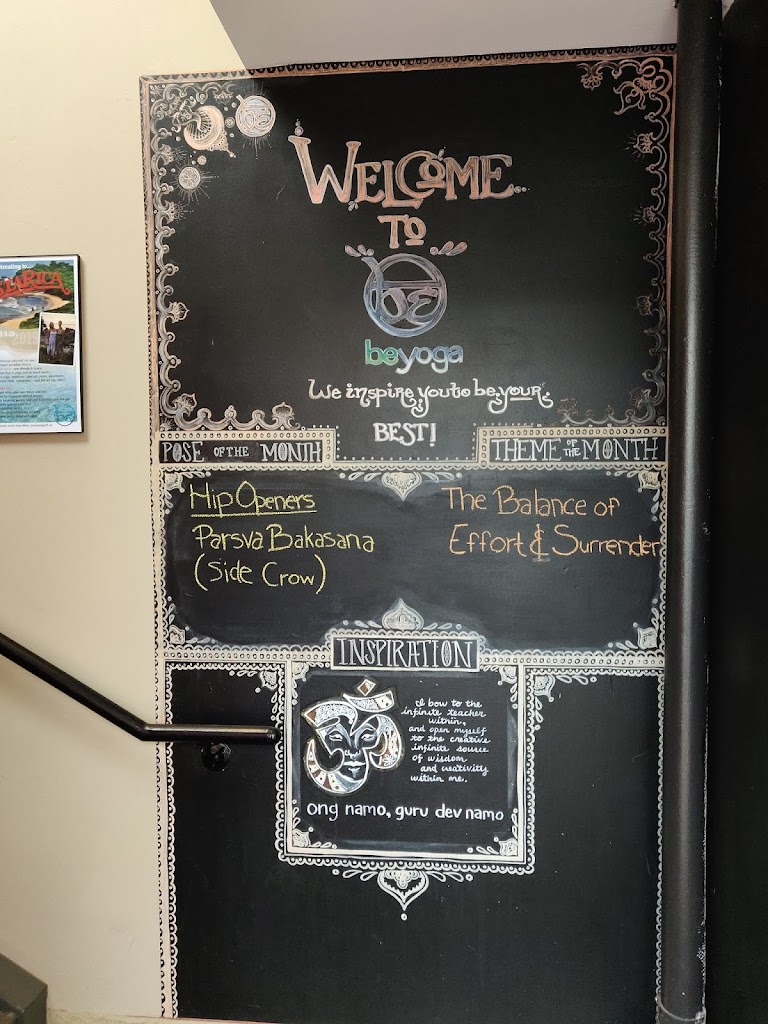 WELCOME
TO
be
beyoga
We inspire you to be your
BEST!
POSE OF THE MONTH
THEME OF THE MONTH
Hip Openers
Parsva Bakasana
(Side Crow)
The Balance of
Effort & Surrender
INSPIRATION
I bow to the
infinite teacher
within,
and open myself
to the creative
infinite source
of wisdom
and creativity
within me.
ong namo, guru dev namo